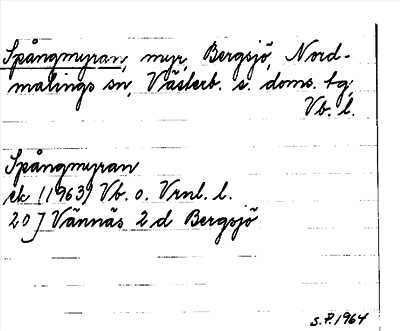 Spångmyran, myr, Bergsjö, Nord-
malings sn, Västerb. s. doms. tg,
Vb. l.
Spångmyran
ek (1963) Vb. o. Vrnl. l.
20J Vännäs 2d Bergsjö
S.P. 1964